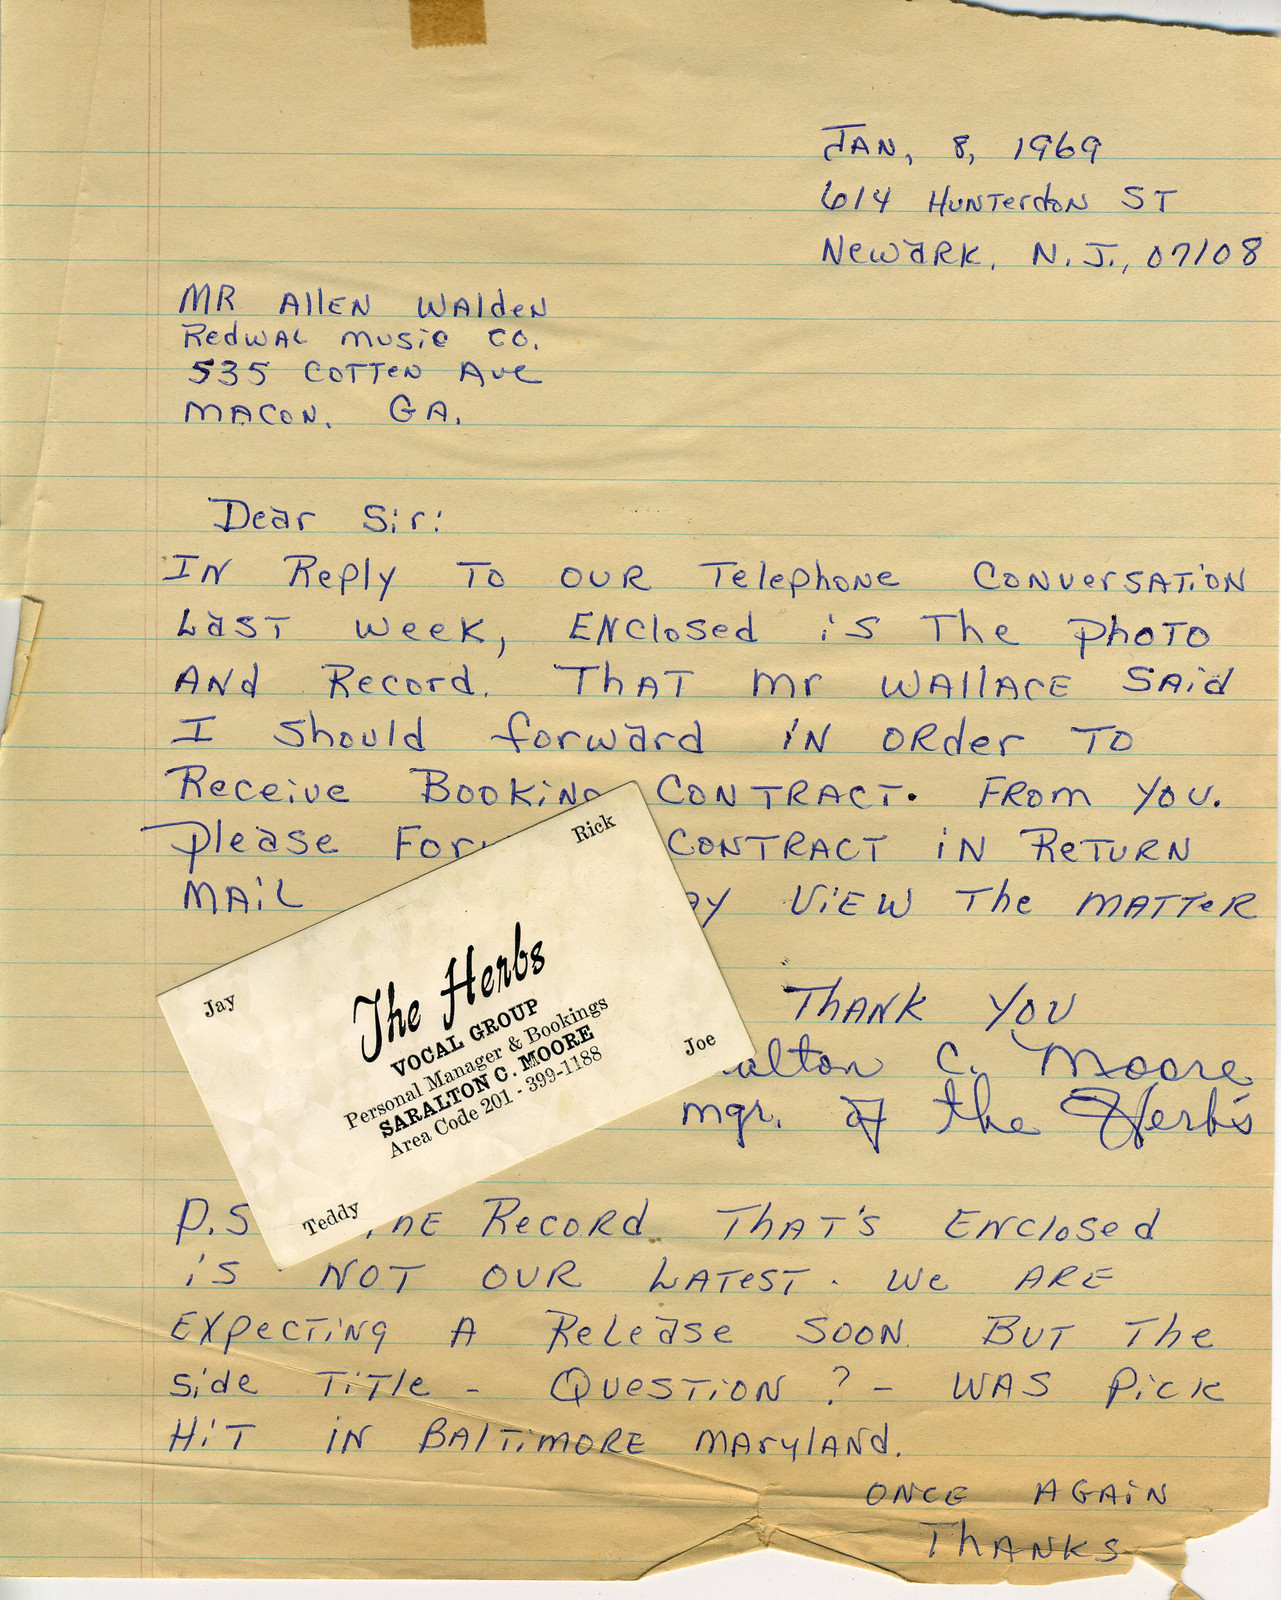 JAN, 8, 1969
614 Hunterdon ST
Newark, N.J., 07108
MR Allen Walden
Redwal music co.
535 Cotten Ave
Macon, GA.
Dear Sir:
In Reply to our Telephone Conversation
Last week, Enclosed is The photo
And Record. That mr Wallace said
I should forward in order to
Receive Booking Contract. From you.
Please Contract in Return
Mail view The matter
Thank you
C. Moore
mgr. of the Herbs
P.S Record that's Enclosed
is not our latest. We are
expecting a Release soon. But The
side title - Question? - was pick
Hit in Baltimore Maryland.
Once Again
Thanks
Jay
Rick
The Herbs
VOCAL GROUP
Personal Manager & Bookings
SARALTON C. MOORE
Area Code 201 - 399-1188
Teddy
Joe